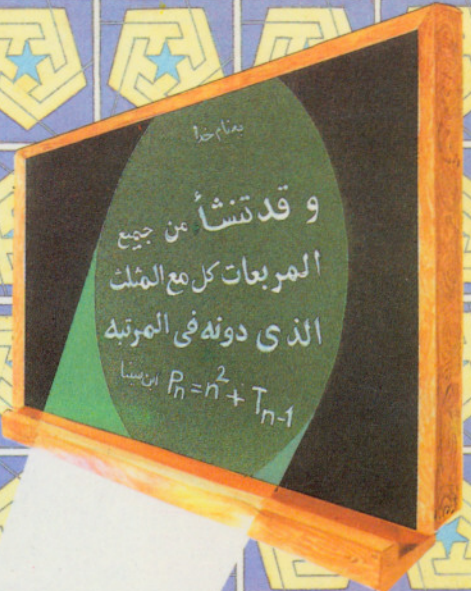 به نام خدا
و قد تنشأ من جميع
المربعات كل مع المثلث
الذى دونه فى المرتبه
ابن سينا P_n = n² + T_{n-1}